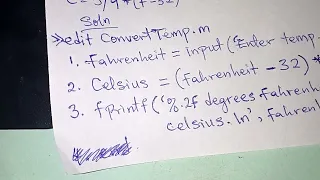 C = 5/9 * (F-32)
Soln
>>edit ConvertTemp.m
1. Fahrenheit = input('Enter temp.
2. Celsius = (fahrenheit - 32) *
3. fprintf('%.2f degrees.fahrenh
celsius.\n', fahrenh